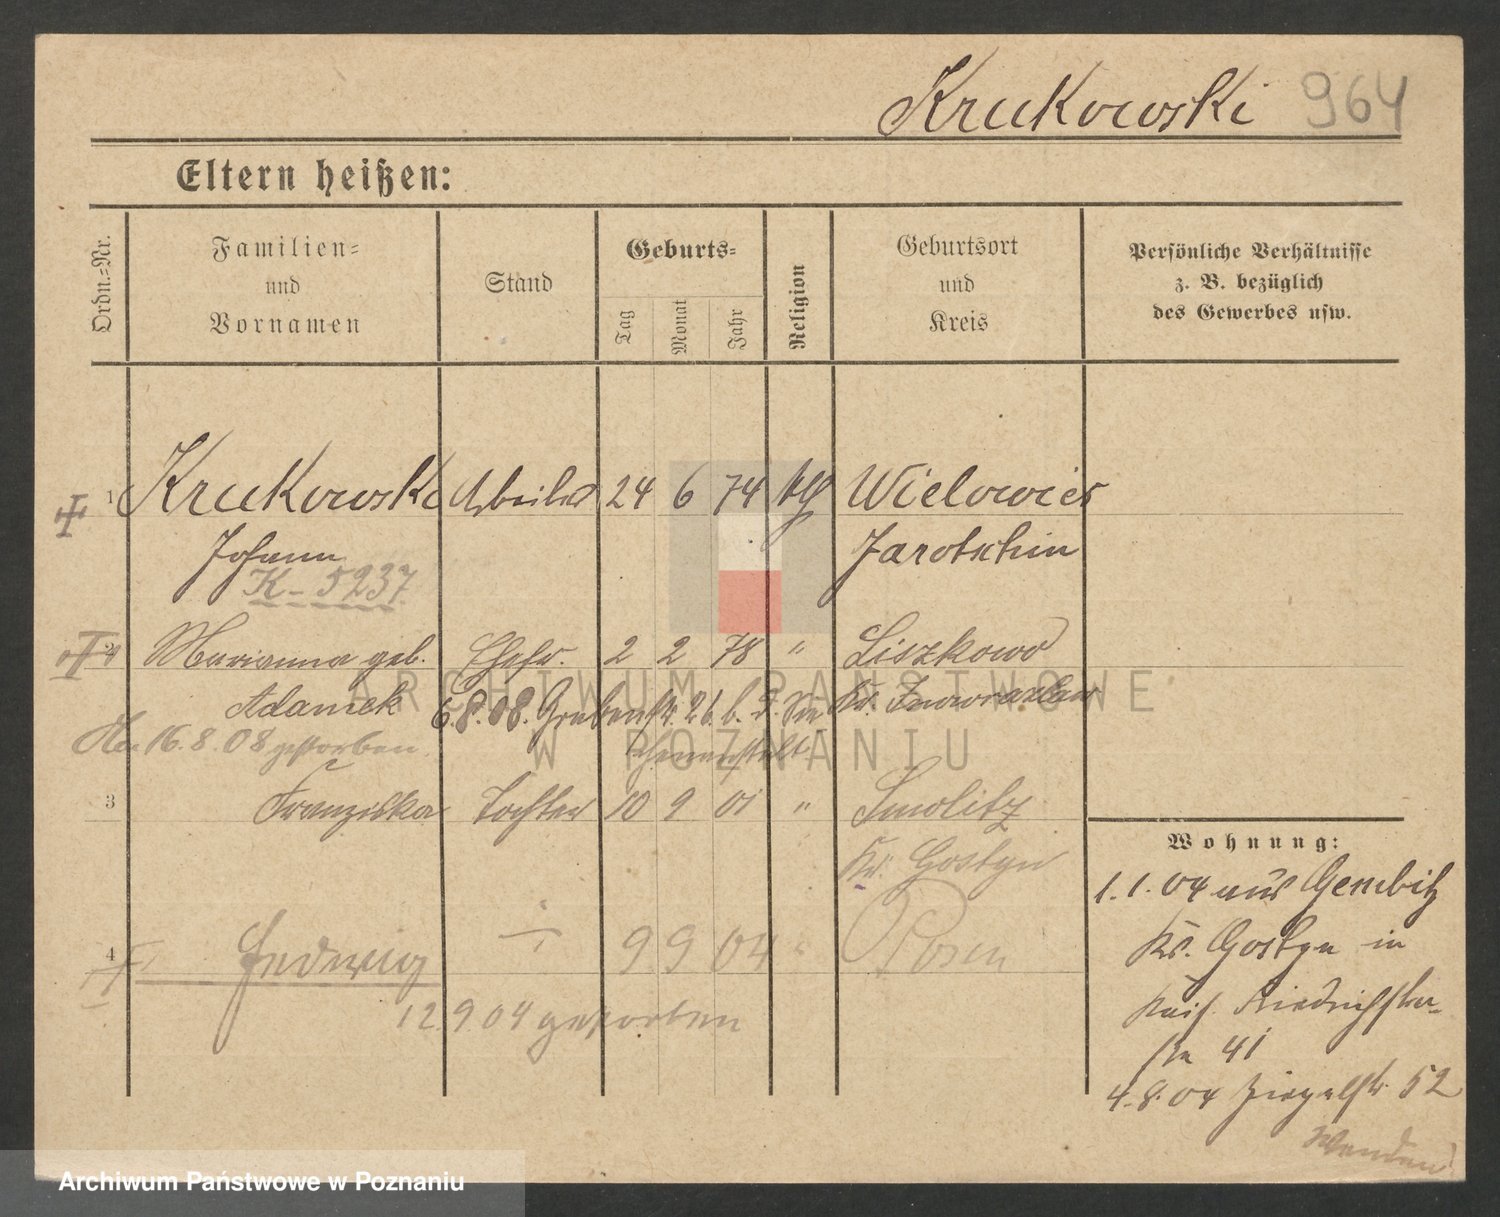 Krukowski 964
Eltern heißen:
Ordn.=Nr.
Familien=
und
Vornamen
Stand
Geburts=
Tag
Monat
Jahr
Religion
Geburtsort
und
Kreis
Persönliche Verhältnisse
z. B. bezüglich
des Gewerbes usw.
1 Krukowski Arbeiter 24 6 74 kth Wielowies
Johann Jarotschin
K – 5237
2 Marianna geb. Ehefr. 2 2 78 " Liszkowo
Adamek 6.8.08. Grabenstr. 26 b. d. Kr. Inowrazlaw
16.8.08 gestorben
3 Franziska Tochter 10 9 01 " Smolitz
Kr. Gostyn
4 Hedwig 9 9 04 Posen
12 9 04 gestorben
Wohnung:
1.1.04 aus Gembitz
Kr. Gostyn in
Kais. Friedrichstra-
ße 41
4.8.04 Ziegelstr. 52
Wenden
ARCHIWUM PAŃSTWOWE
W POZNANIU
Archiwum Państwowe w Poznaniu